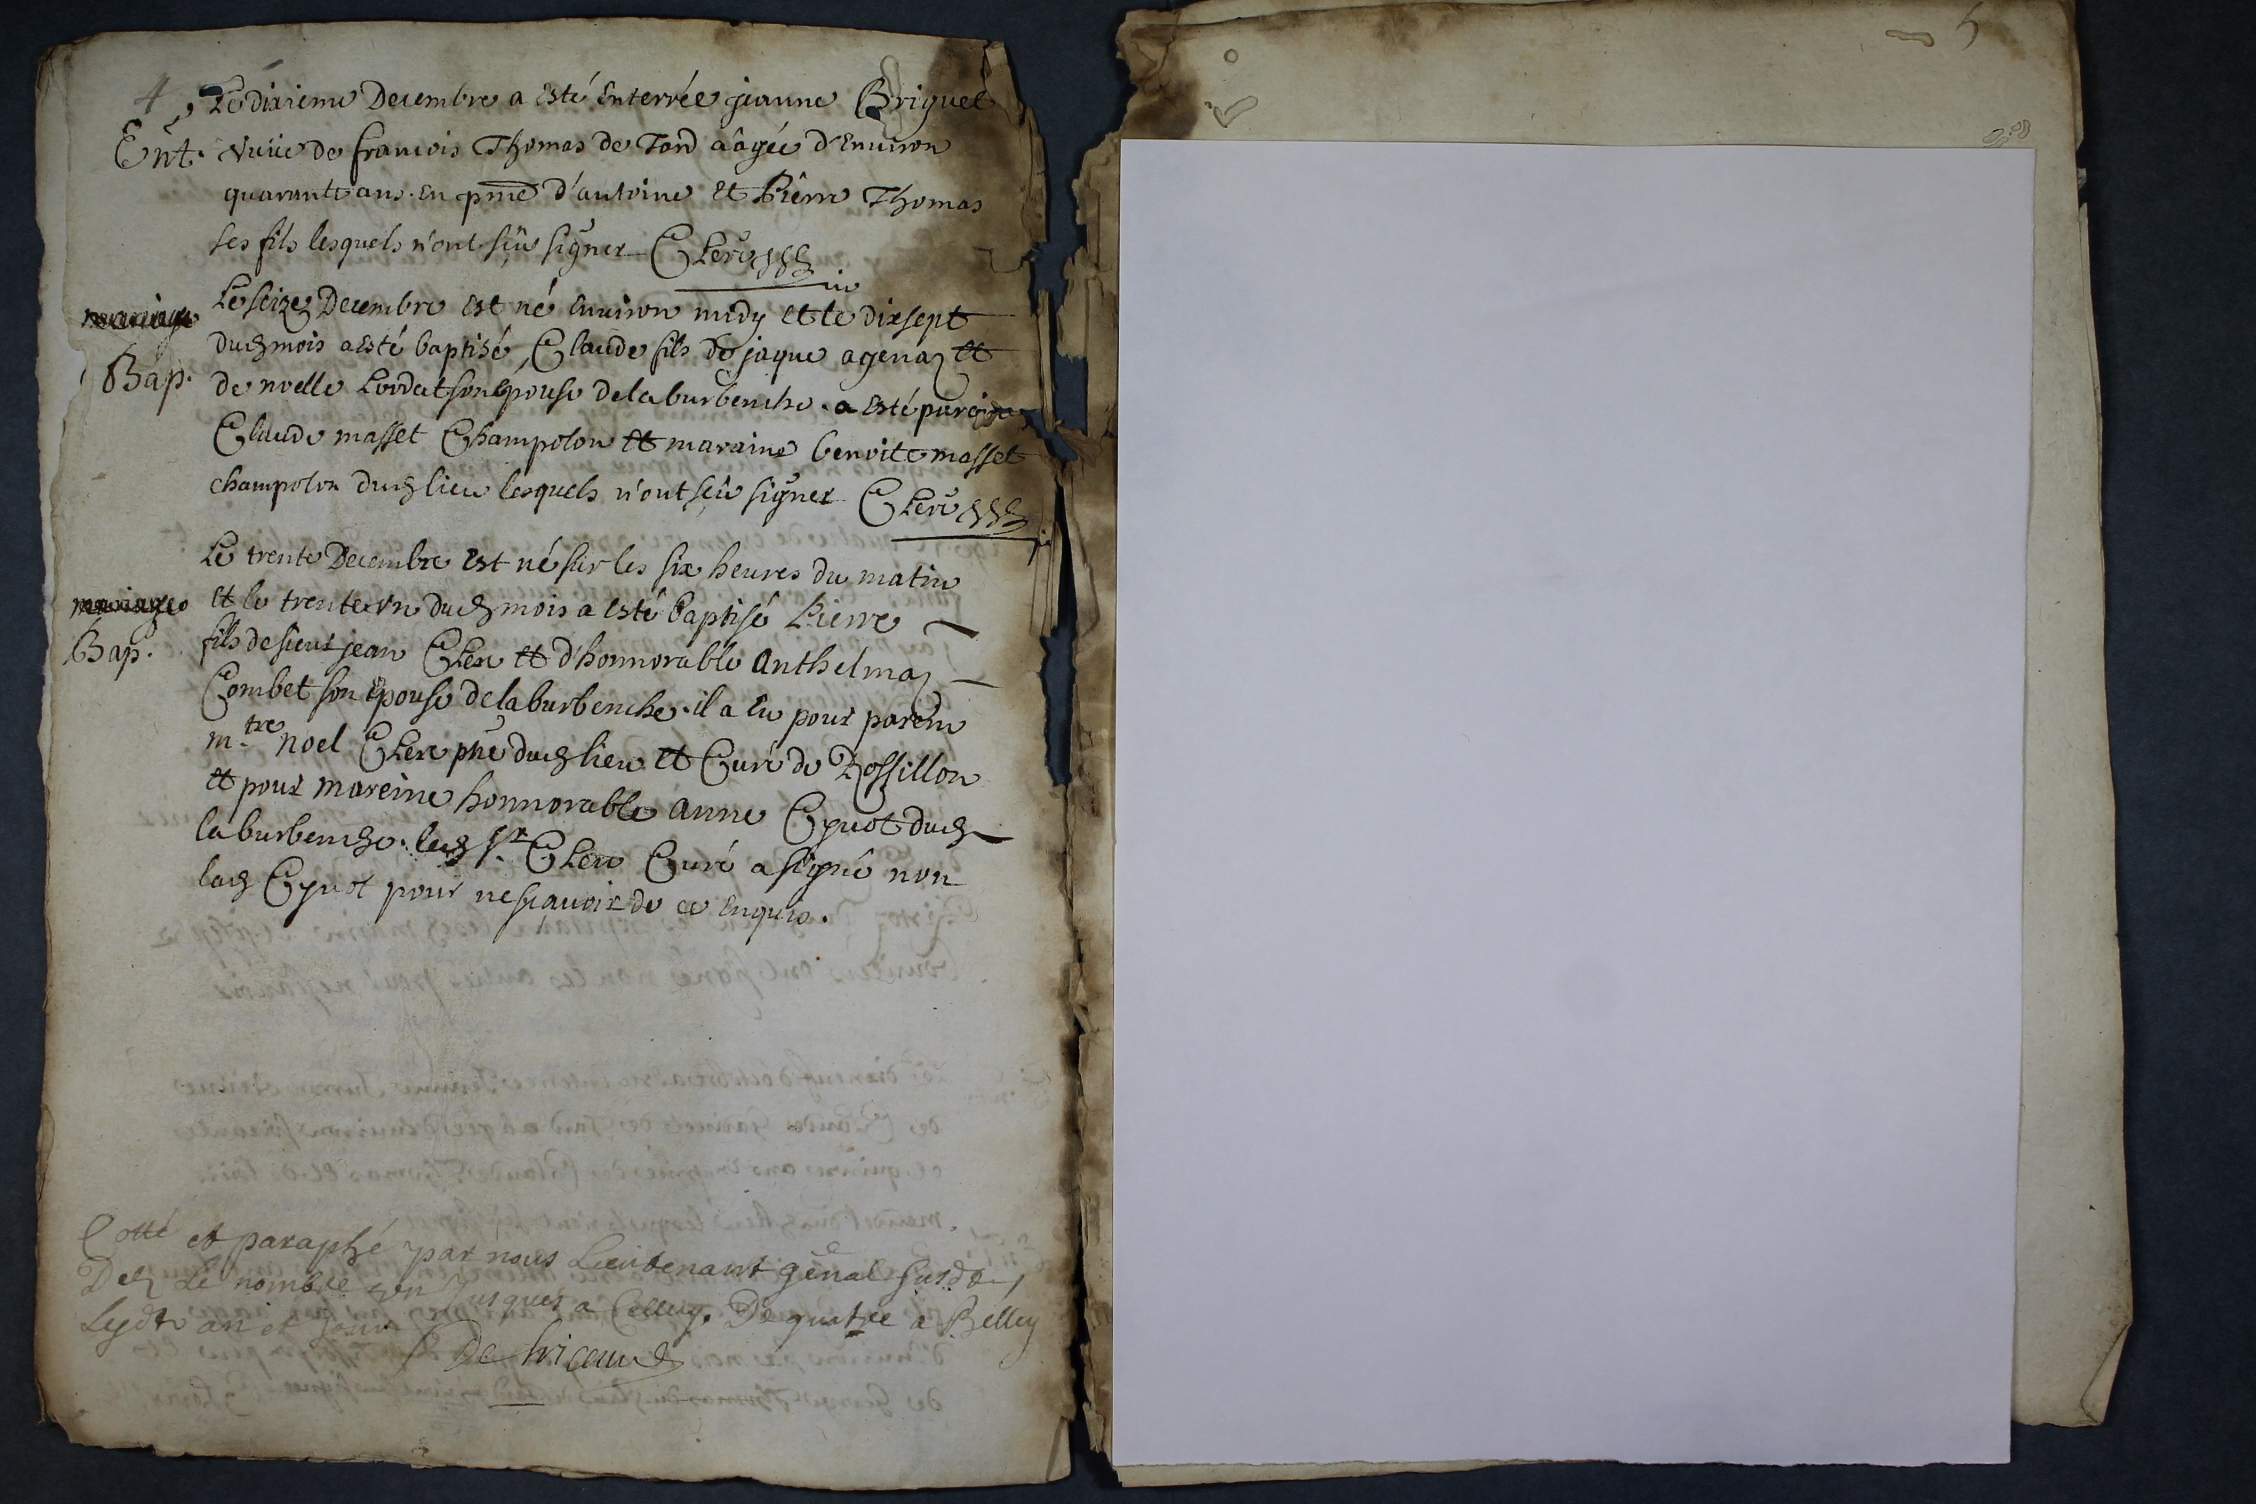 4
5
Le dixieme Decembre a esté enterrée jeanne Briguet
Ent. vuüe de francois Thomas de Tard aâgée d'environ
quarante ans. en pnce d'antoine et Pierre Thomas
ses fils lesquels n'ont sçu signer Clerc
mariage Le seize Decembre est né environ midy et le dixsept
dud mois a esté baptisé Claude fils de jaque agenaz et
Bap. de noelle Lordat son épouse de la burbenche. a esté parein
Claude masset Champolon et maraine benoite masset
champolon dud lieu lesquels n'ont seü signer Clerc
Le trente Decembre est né sur les six heures du matin
mariage et le trente vn dud mois a esté baptisé Pierre
Bap. fils de sieur jean Clerc et d'honnorable Anthelmaz
Combet son épouse de la burbenche. il a eu pour parein
m.tre noel Clerc pñe dud lieu et Curé de Rossillon
et pour mareine honnorable anne Cyuot dud
la burbenche. led sr. Clerc Curé a signé non
lad Cyuot pour ne sçauoir de ce enquis.
Cotté et paraphé par nous Lieutenant genal susdt
Dez Le nombre un Jusques a Celluy De quatre a Belley
Lesdts an et jour